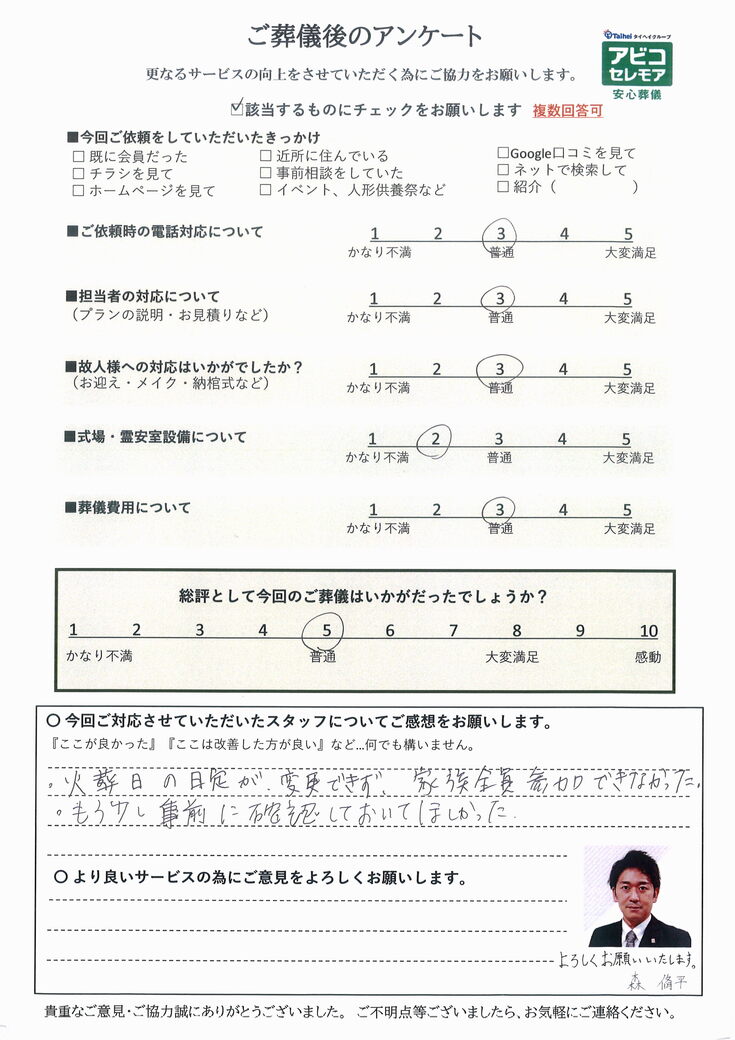 ご葬儀後のアンケート
Taihei タイヘイグループ
アビコ
セレモア
安心葬儀
更なるサービスの向上をさせていただく為にご協力をお願いします。
☑該当するものにチェックをお願いします 複数回答可
■今回ご依頼をしていただいたきっかけ
□ 既に会員だった □ 近所に住んでいる □Google口コミを見て
□ チラシを見て □ 事前相談をしていた □ ネットで検索して
□ ホームページを見て □ イベント、人形供養祭など □ 紹介（ ）
■ご依頼時の電話対応について 1 2 3 4 5
かなり不満 普通 大変満足
■担当者の対応について 1 2 3 4 5
（プランの説明・お見積りなど） かなり不満 普通 大変満足
■故人様への対応はいかがでしたか？ 1 2 3 4 5
（お迎え・メイク・納棺式など） かなり不満 普通 大変満足
■式場・霊安室設備について 1 2 3 4 5
かなり不満 普通 大変満足
■葬儀費用について 1 2 3 4 5
かなり不満 普通 大変満足
総評として今回のご葬儀はいかがだったでしょうか？
1 2 3 4 5 6 7 8 9 10
かなり不満 普通 大変満足 感動
〇 今回ご対応させていただいたスタッフについてご感想をお願いします。
『ここが良かった』『ここは改善した方が良い』など…何でも構いません。
。火葬日の日程が変更できず、家族全員参加できなかった。
。もう少し事前に確認しておいてほしかった。
〇 より良いサービスの為にご意見をよろしくお願いします。
よろしくお願いいたします。
森 脩平
貴重なご意見・ご協力誠にありがとうございました。 ご不明点等ございましたら、お気軽にご連絡ください。